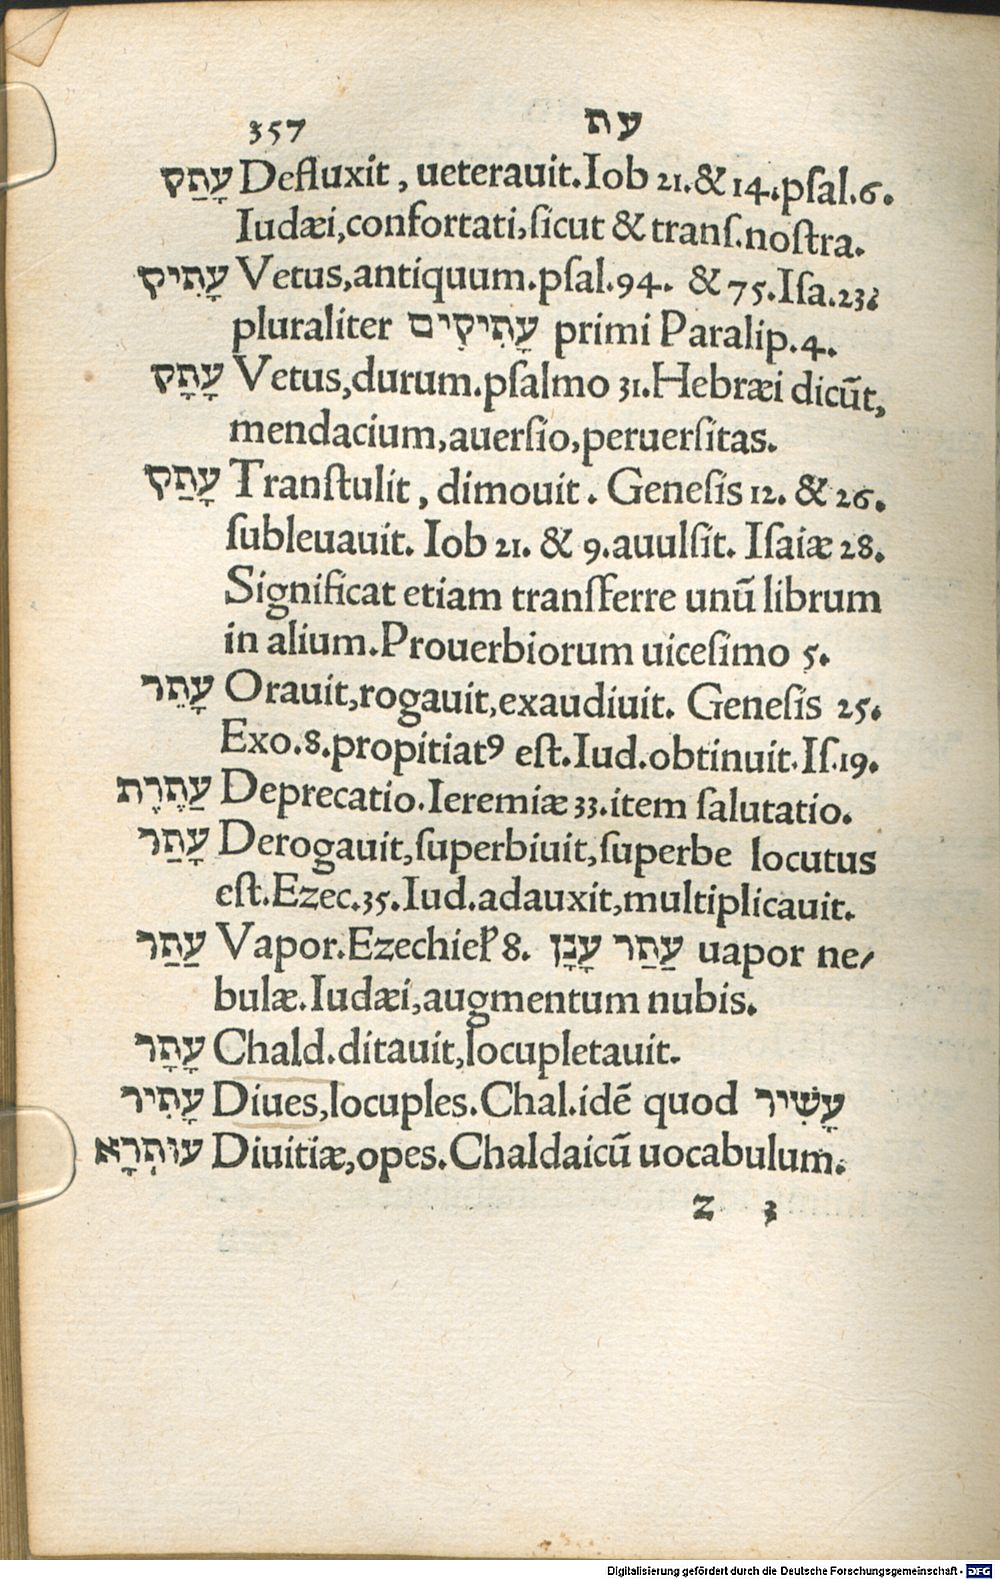 357 עת
עָתַק Defluxit, ueterauit. Iob 21. & 14. psal. 6.
Iudæi, confortati, sicut & trans. nostra.
עָתִיק Vetus, antiquum. psal. 94. & 75. Isa. 23.
pluraliter עָתִיקִים primi Paralip. 4.
עָתָק Vetus, durum. psalmo 31. Hebræi dicūt,
mendacium, auersio, peruersitas.
עָתַק Transtulit, dimouit. Genesis 12. & 26.
subleuauit. Iob 21. & 9. auulsit. Isaiæ 28.
Significat etiam transferre unū librum
in alium. Prouerbiorum uicesimo 5.
עָתַר Orauit, rogauit, exaudiuit. Genesis 25.
Exo. 8. propitiatꝰ est. Iud. obtinuit. Is. 19.
עֲתֶרֶת Deprecatio. Ieremiæ 33. item salutatio.
עָתַר Derogauit, superbiuit, superbe locutus
est. Ezec. 35. Iud. adauxit, multiplicauit.
עֲתַר Vapor. Ezechiel 8. עֲתַר עָנָן uapor ne/
bulæ. Iudæi, augmentum nubis.
עָתָר Chald. ditauit, locupletauit.
עָתִיר Diues, locuples. Chal. idē quod עָשִׁיר
עוּתְרָא Diuitiæ, opes. Chaldaicū uocabulum.
Z 3
Digitalisierung gefördert durch die Deutsche Forschungsgemeinschaft - DFG